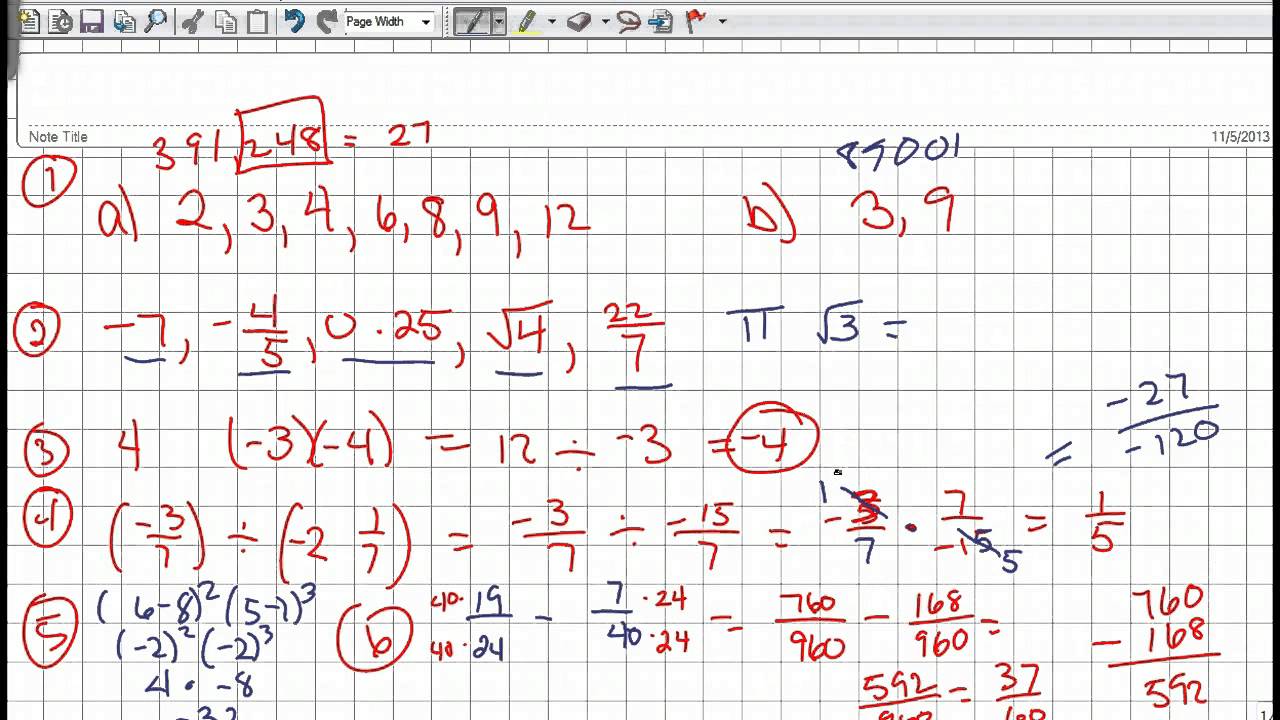 Page Width
Note Title
11/5/2013
391,248 = 27
89001
① a) 2, 3, 4, 6, 8, 9, 12 b) 3, 9
② -7, -4/5, 0.25, √4, 22/7 π √3 =
= -27/-120
③ 4 (-3)(-4) = 12 ÷ -3 = -4
④ (-3/7) ÷ (-2 1/7) = -3/7 ÷ -15/7 = -3/7 · 7/-15 = 1/5
1 5
⑤ (6-8)²(5-7)³
(-2)²(-2)³
4 · -8
-32
⑥ 40· 19/40· 24 - 7 ·24/40 ·24 = 760/960 - 168/960 =
592/960 = 37/60
760
- 168
592